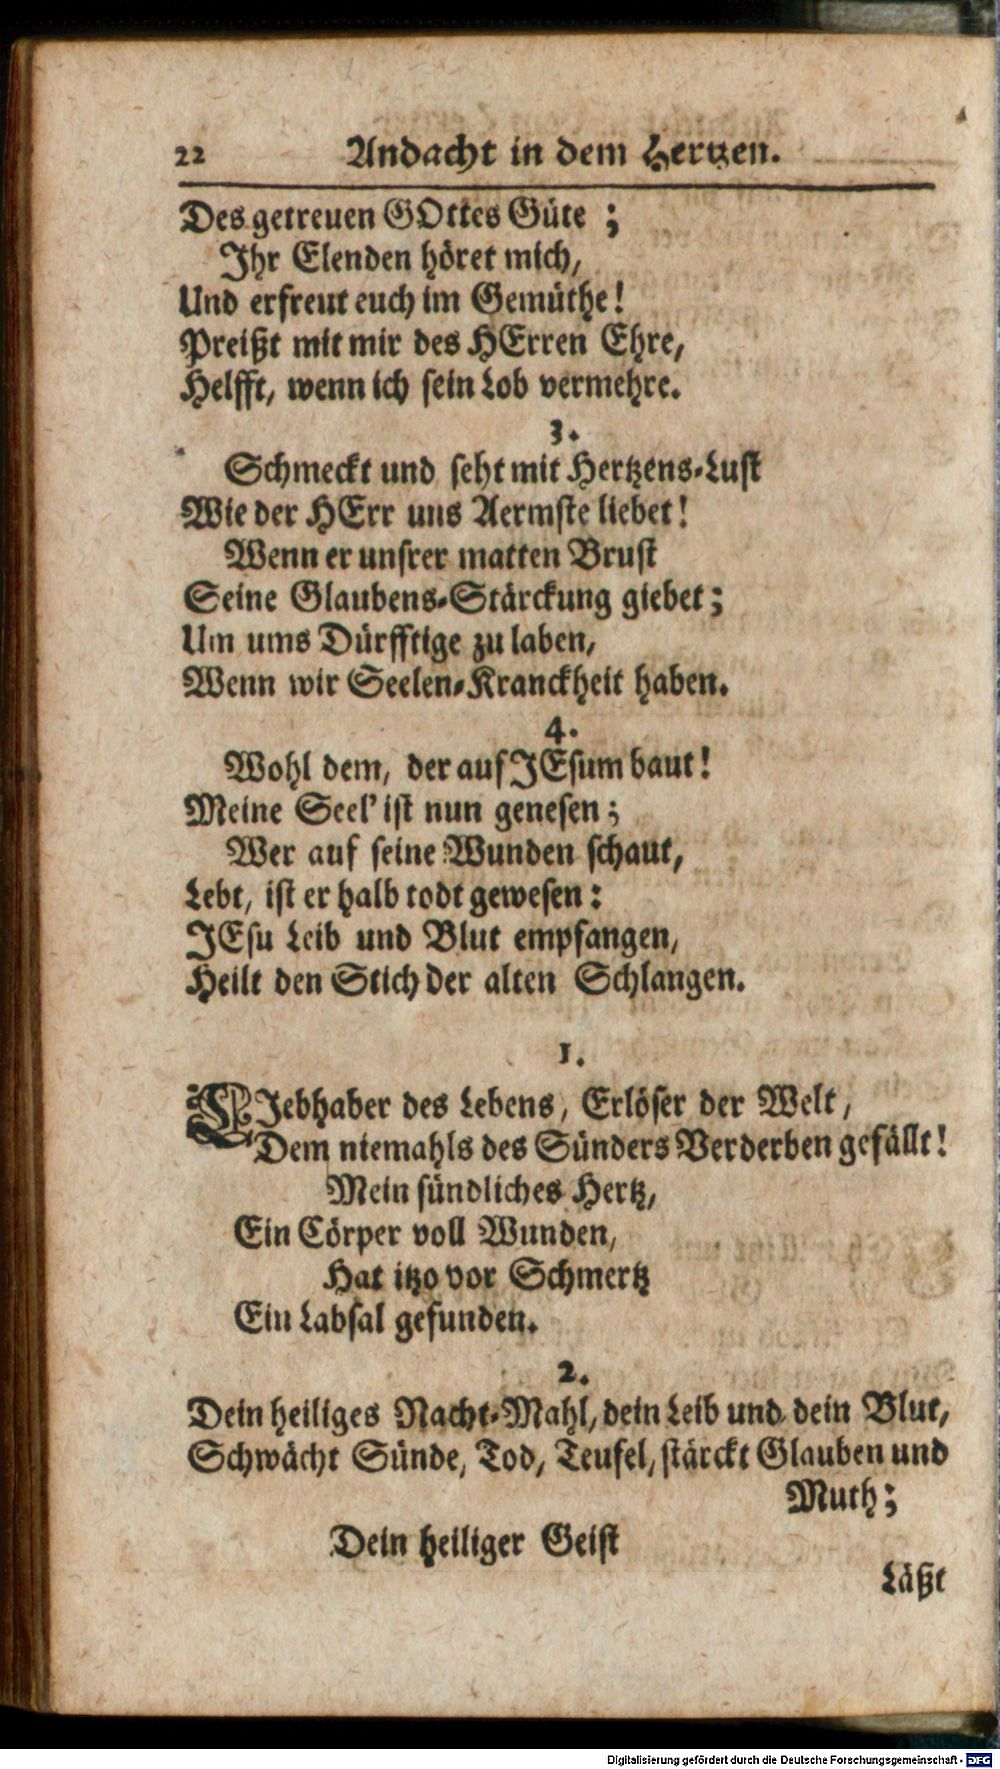 22 Andacht in dem Hertzen.
Des getreuen GOttes Güte ;
Ihr Elenden höret mich,
Und erfreut euch im Gemüthe!
Preißt mit mir des HErren Ehre,
Helfft, wenn ich sein Lob vermehre.
3.
Schmeckt und seht mit Hertzens-Lust
Wie der HErr uns Aermste liebet!
Wenn er unsrer matten Brust
Seine Glaubens-Stärckung giebet;
Um ums Dürfftige zu laben,
Wenn wir Seelen-Kranckheit haben.
4.
Wohl dem, der auf JEsum baut!
Meine Seel' ist nun genesen;
Wer auf seine Wunden schaut,
Lebt, ist er halb todt gewesen:
JEsu Leib und Blut empfangen,
Heilt den Stich der alten Schlangen.
1.
LIebhaber des Lebens, Erlöser der Welt,
Dem niemahls des Sünders Verderben gefällt!
Mein sündliches Hertz,
Ein Cörper voll Wunden,
Hat itzo vor Schmertz
Ein Labsal gefunden.
2.
Dein heiliges Nacht-Mahl, dein Leib und dein Blut,
Schwächt Sünde, Tod, Teufel, stärckt Glauben und
Muth;
Dein heiliger Geist
Läßt
Digitalisierung gefördert durch die Deutsche Forschungsgemeinschaft - DFG